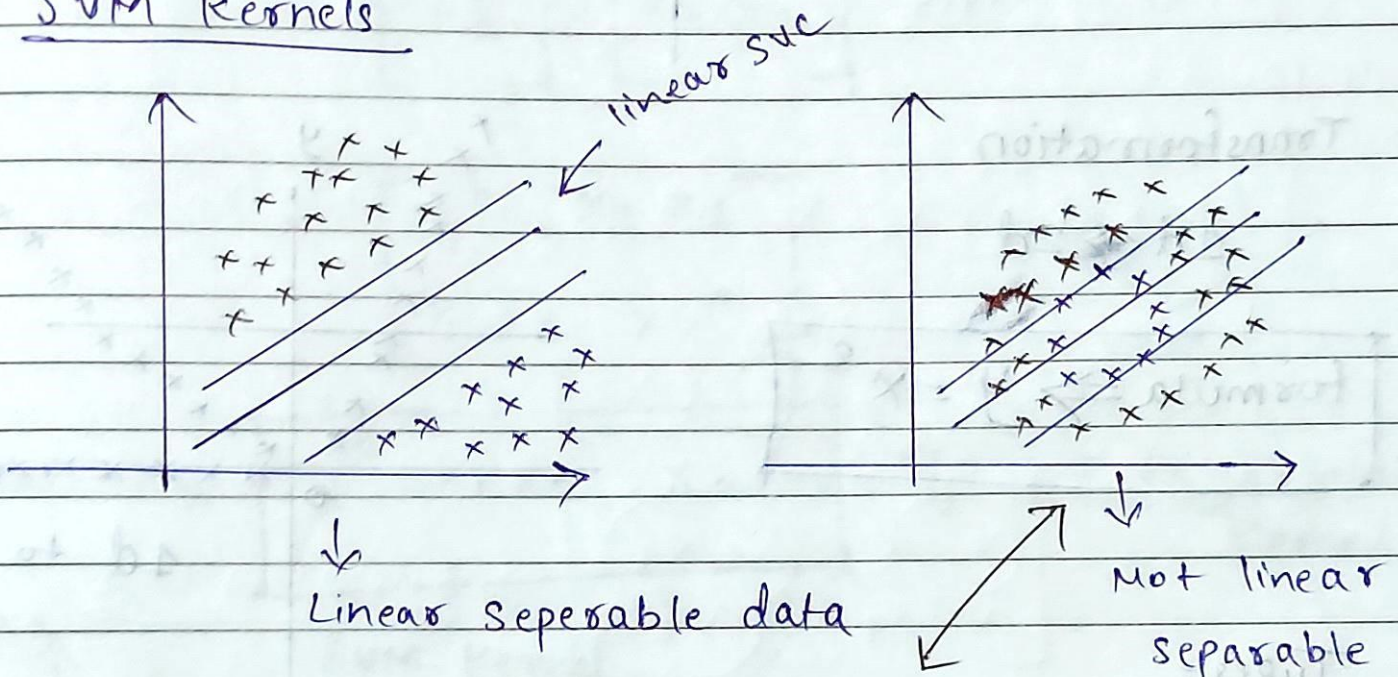 SVM Kernels
linear SVC
Linear seperable data
Not linear
separable